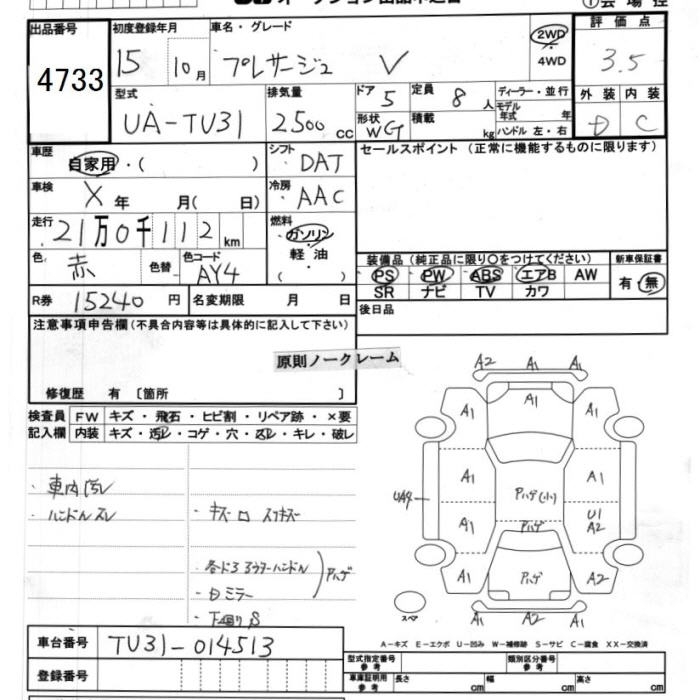 出品番号 初度登録年月 車名・グレード 2WD 4WD 評価点
4733 15年 10月 プレサージュ V 3.5
型式 排気量 ドア 5 定員 8人 ディーラー・並行 外装 内装
UA-TU31 2500cc 形状 WGT 積載 kg モデル年式 年 ハンドル 左・右 D C
車歴 自家用・( ) シフト DAT セールスポイント (正常に機能するものに限ります)
車検 X年 月( 日) 冷房 AAC
走行 21万0千112km 燃料 ガソリン・軽油・( )
色 赤 色替 色コード AY4 装備品(純正品に限り○をつけてください) 新車保証書
PS PW ABS エアB AW 有・無
R券 15240円 名変期限 月 日 SR ナビ TV カワ
注意事項申告欄(不具合内容等は具体的に記入して下さい) 後日品
原則ノークレーム
修復歴 有 〔箇所 〕
検査員 FW キズ・飛石・ヒビ割・リペア跡・×要
記入欄 内装 キズ・汚レ・コゲ・穴・スレ・キレ・破レ
・車内汚レ
・ハンドルスレ ・キズ
・各ドアアウターハンドル
・ミラー
ハゲ
・下廻りS
A2 A1 A1
A1 A1 A1
A1 Pハゲ(小) A1
UA4 A1 Pハゲ U1 A2
A1 Pハゲ A2
スペア A1 A2 A1
A-キズ E-エクボ U-凹み W-補修跡 S-サビ C-腐食 XX-交換済
車台番号 TU31-014513
型式指定番号 参考 類別区分番号 参考
登録番号 車庫証明用 参考 長さ cm 幅 cm 高さ cm